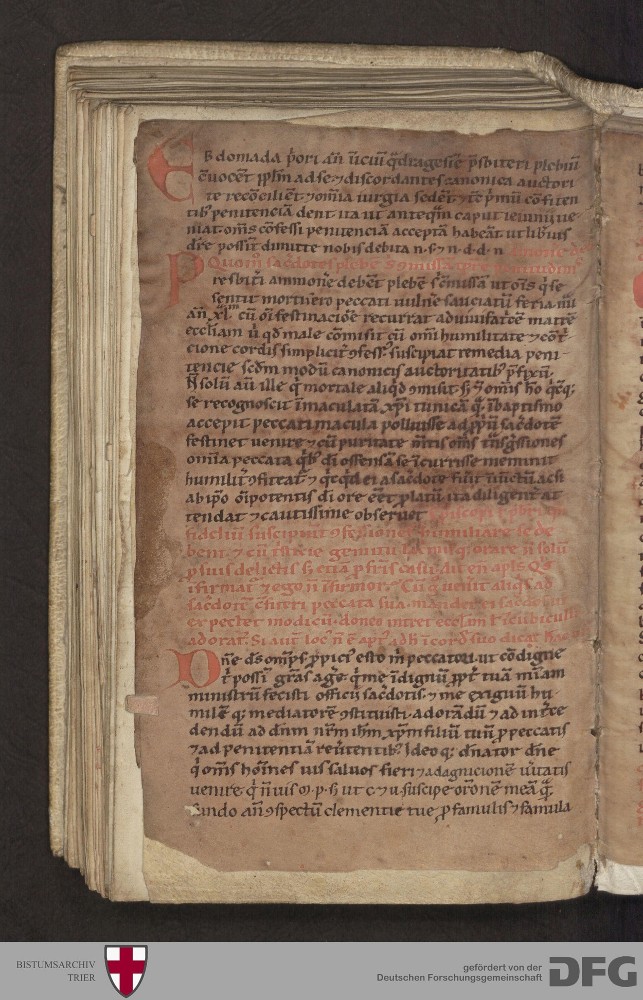 Ebdomada p̄ori an̄ īiciū q̄dragesime p̄sbiteri plebiū
c̄uocēt ppl̄m ad se ⁊ discordantes canonica auctori
te recōciliēt ⁊ om̄ia iurgia sedēt ⁊ tc̄ p̄mū cōfiten
tib' penitenciā dent ita ut anteq̄m caput ieiunii ue
niat om̄s cōfessi penitenciā acceptā habeāt ut lib'ius
dic̄re possīt dimitte nobis debita n. s. ⁊ n. d. d. n
sac̄dotes plebē
resbit̄i ammone debēt plebē s̄ missā ut om̄s q̄ se
sentit mortif̄ero peccati uuln̄e sauciatū feria
an̄ xl. cū om̄i festinacioē recurrat ad uiuificat̄cē matrē
eccl̄iam u q̄d male cōmisit cū om̄i humilitate ⁊ cōt̄
cione cordis simplicit̄ ꝯfess' suscipiat remedia peni-
tencie scdm modū canonicis auctoritatib' p̄fixū.
N̄ solū aū ille q̄ mortale aliq̄d ꝯmisit s; ⁊ om̄is hō q̄cq̄;
se recognoscit īmaculatā xp̄i tunicā q̄ ī baptismo
accepit peccati macula polluisse ad pp̄ū sac̄dotē
festinet uenire ⁊ cū puritate m̄tis om̄s t̄nsgressiones
om̄ia peccata q̄b' dī offensā se īcurrisse meminit
humilit̄ ꝯfiteat̄ ⁊ q̄cq̄d ei a sac̄dote fūit iniūctū acsi
ab ip̄o om̄ipotentis dī ore eēt platū ita diligent̄ at
tendat ⁊ cautissime obseruet
fideliū suscipiūt ꝯfessiones humiliare se de
bent ⁊ cū tristicie gemitu lacrimisq; orare n̄ solū
p suis delictis s; etiā p fr̄is casu. Ait en̄ apl̄s Q's
ifirmat' ⁊ ego n̄ ifirmor. Cū q̄ uenit aliq's ad
sac̄dotē c̄fiteri peccata sua. mandet ei sac̄dos ut
expectet modicū. donec intret eccl̄am ł ī cubiculū
ad orat̄. Si aūt loc' n̄ ē apt' adh̄ ī corde suo dicat
Dn̄e ds om̄ps. ppici' esto m̄ peccatori. ut cōdigne
t' possī grās agē. q̄ me īdignū ppt̄ tuā mīam
ministrū fecisti officii sac̄dotis. ⁊ me exiguū hu-
milēq; mediatorē ꝯstituisti. adorādū ⁊ ad int̄ce
dendū ad dn̄m nr̄m ihm̄ xp̄m filiū tuū p peccatis
⁊ ad penitentiā reūtentib'. Ideoq; dn̄ator dn̄e
q̄ om̄s hoīnes uis saluos fieri ⁊ ad agnicionē ūitatis
uenire. q̄ n̄ uis m̄. p. s; ut c. ⁊ u. suscipe or̄onē meā q̄
fundo an̄ ꝯspectū clementie tue. p famulis ⁊ famula
BISTUMSARCHIV
TRIER
gefördert von der
Deutschen Forschungsgemeinschaft
DFG